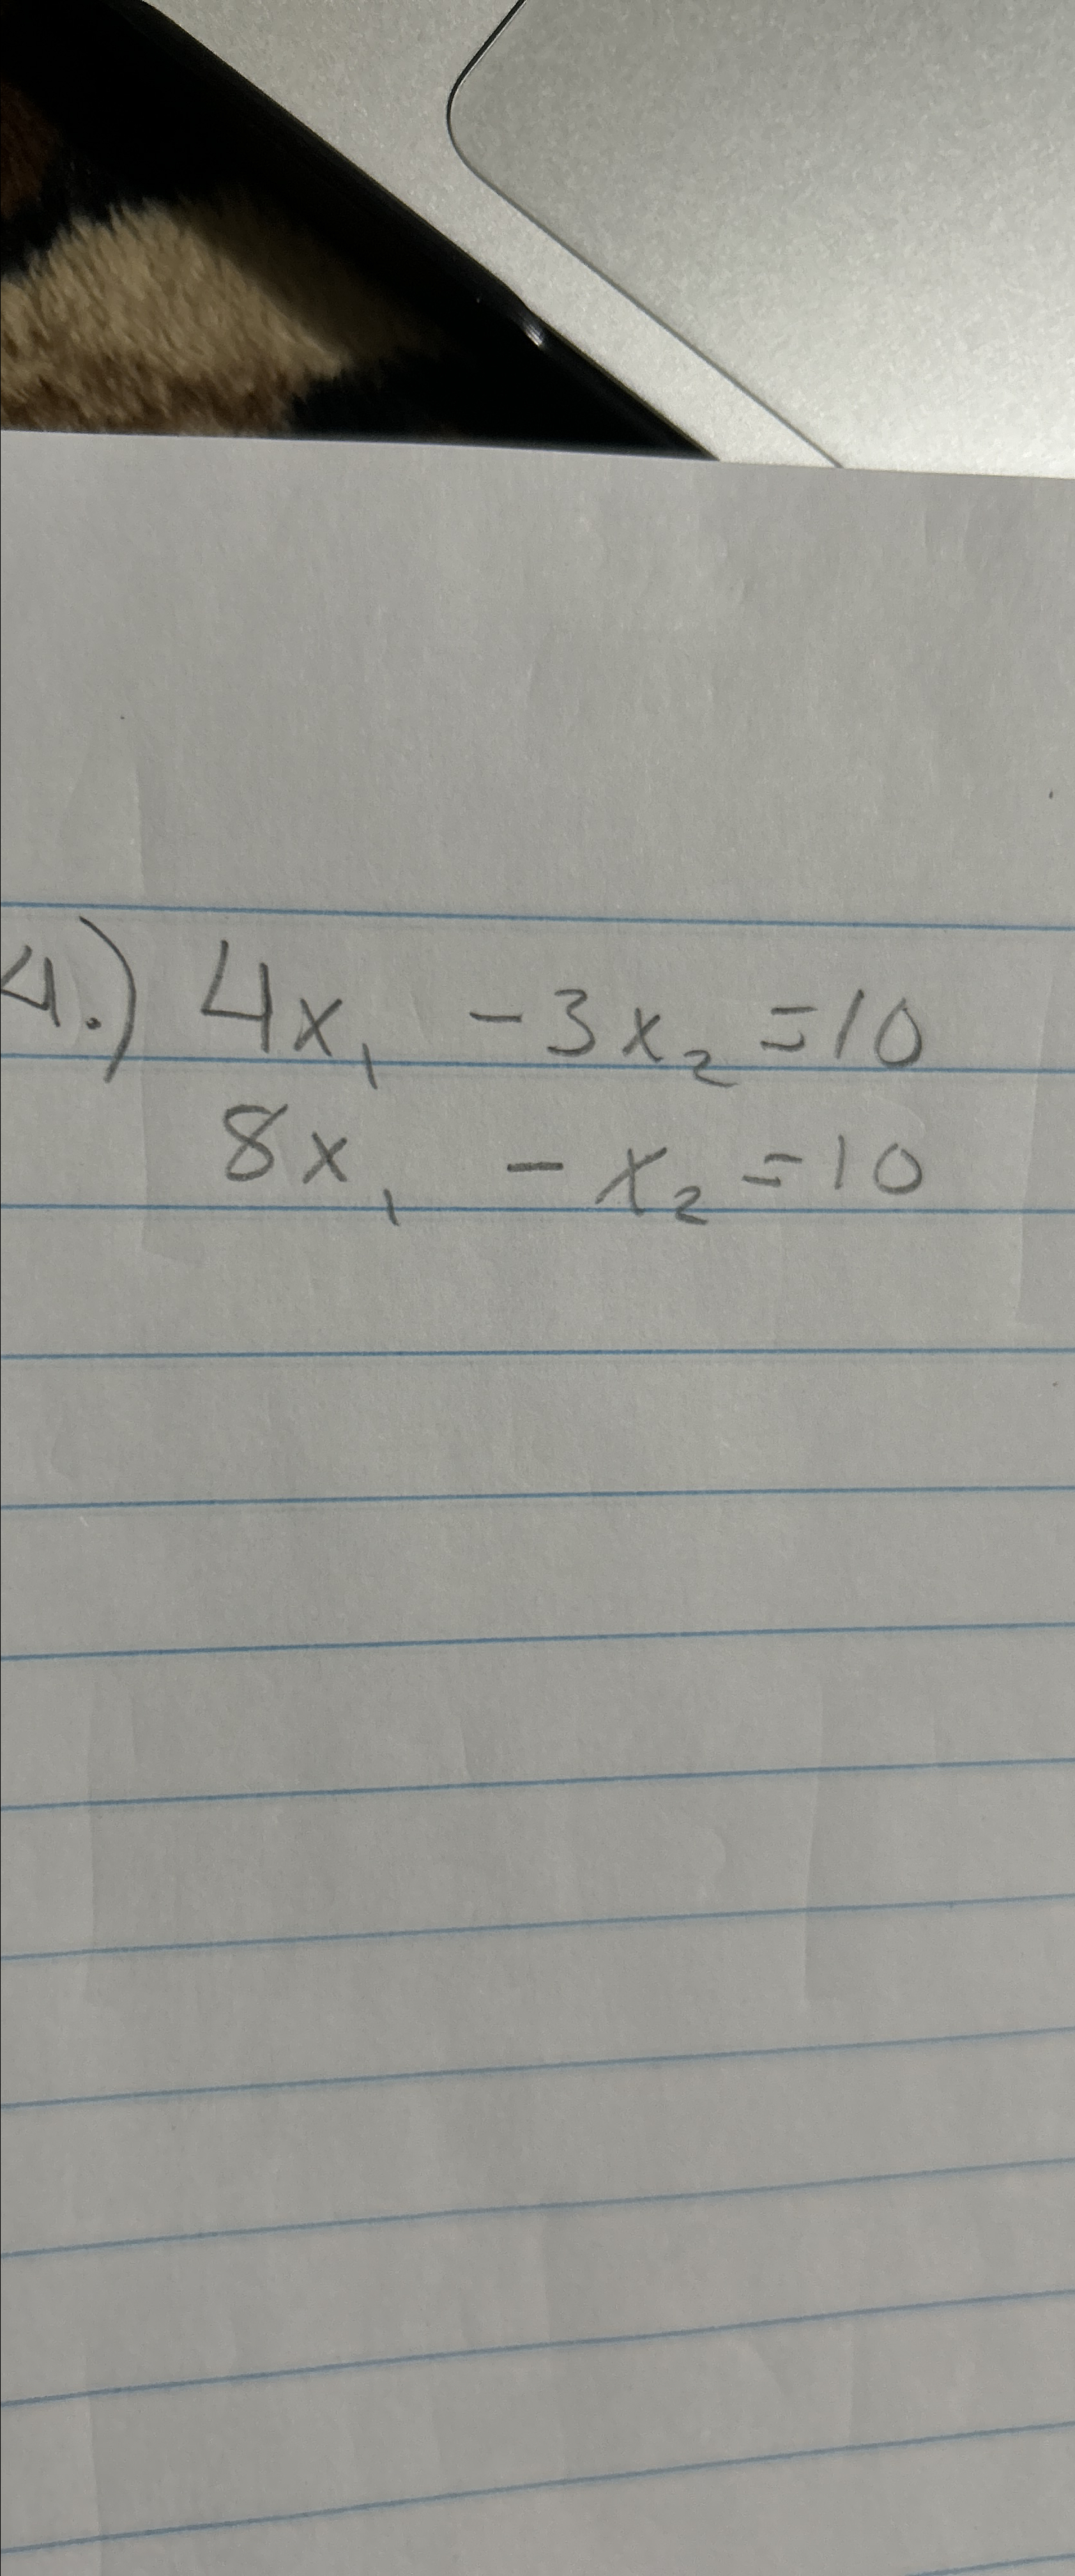 4.) 4x₁ - 3x₂ = 10
8x₁ - x₂ = 10